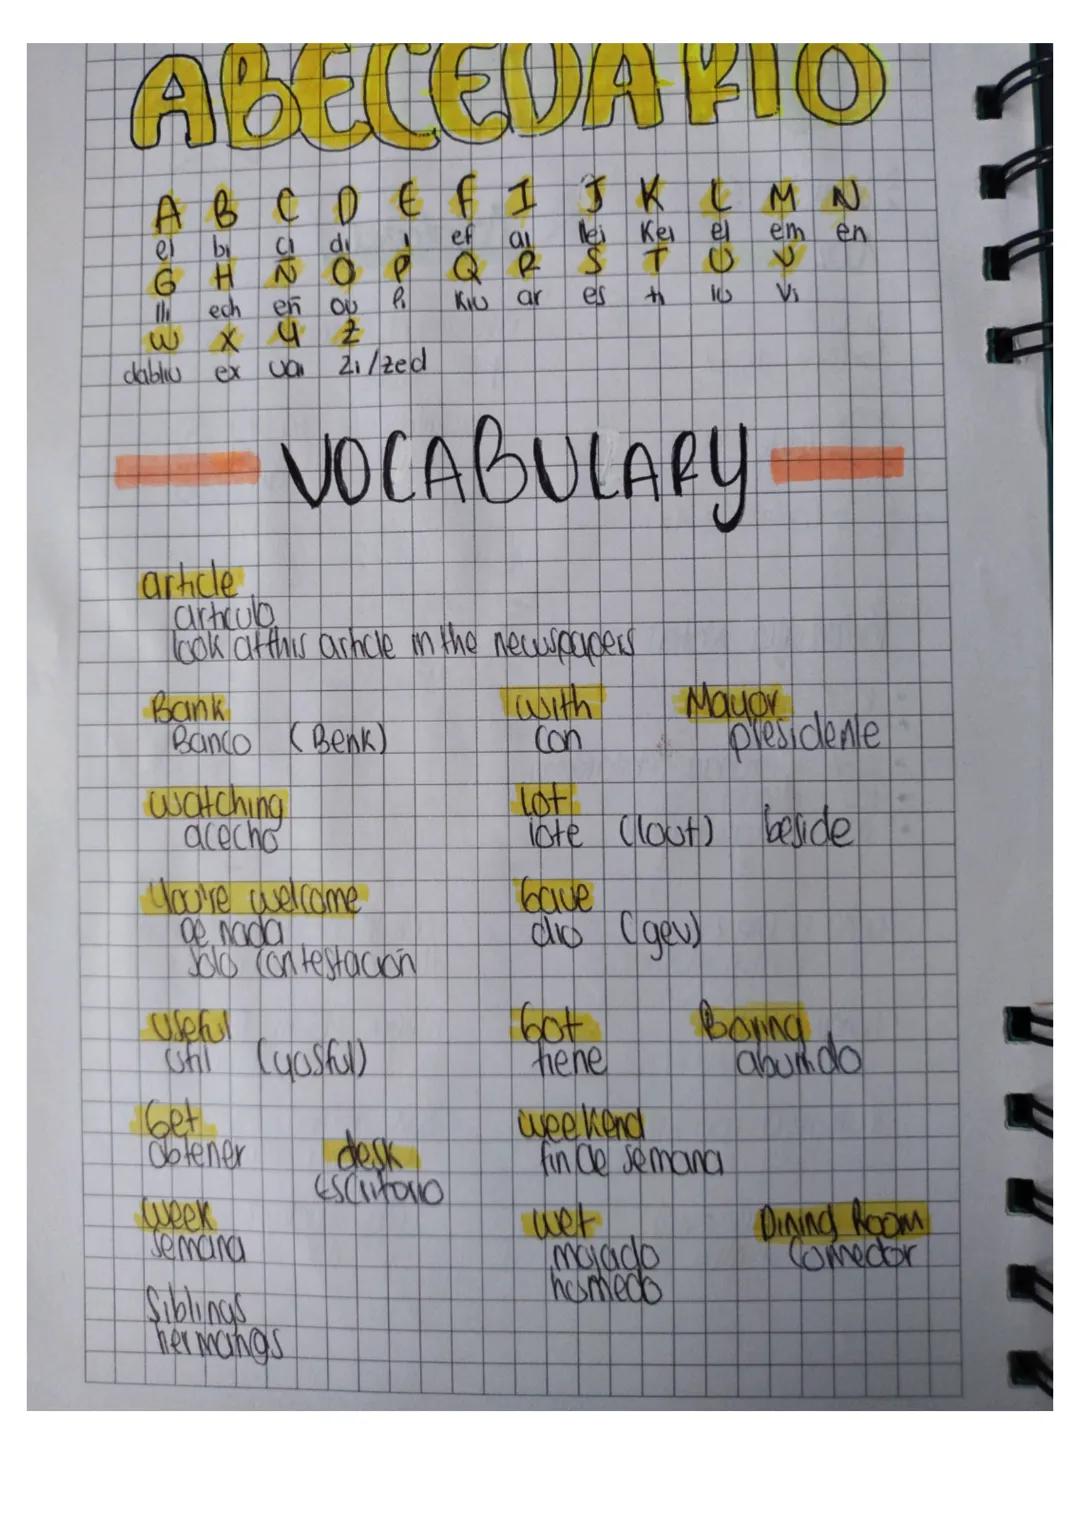 ABECEDARIO
A B C D E F I J K L M N
ei bi ci di i ef ai llei Kei el em en
G H Ñ O P Q R S T U V
lli ech eñ ou Pi Kiu ar es ti iu Vi
W X Y Z
dabliu ex uai Zi/zed
VOCABULARY
article
articulo
look at this article in the newspapers
Bank
Banco (Benk)
with
con
Mayor
presidente
watching
acecho
Lot
lote (lout) beside
You're welcome
de nada
Solo contestación
Gave
dio (gev)
Useful
Util (yusful)
Got
tiene
Boring
aburrido
Get
obtener
desk
Escritorio
weekend
fin de semana
Week
semana
wet
mojado
humedo
Dining Room
Comedor
Siblings
herman@s